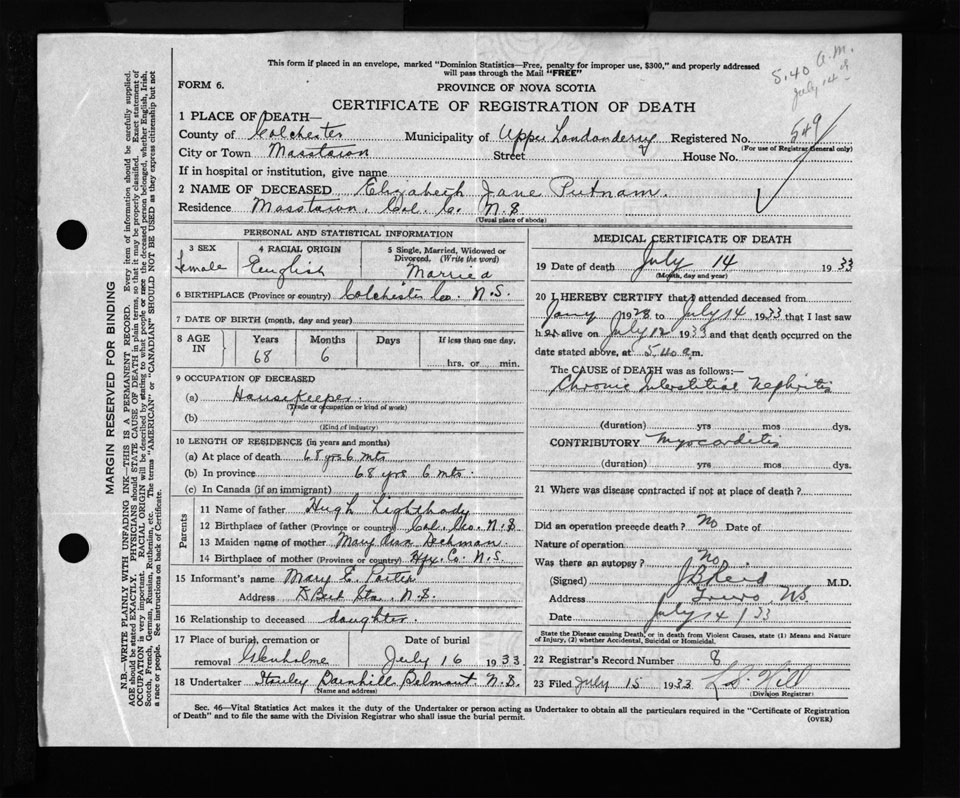 5.40 a.m.
July 14
This form if placed in an envelope, marked "Dominion Statistics—Free, penalty for improper use, $300," and properly addressed
will pass through the Mail "FREE"
FORM 6.
PROVINCE OF NOVA SCOTIA
CERTIFICATE OF REGISTRATION OF DEATH
MARGIN RESERVED FOR BINDING
N.B.—WRITE PLAINLY WITH UNFADING INK—THIS IS A PERMANENT RECORD. Every item of information should be carefully supplied.
AGE should be stated EXACTLY. PHYSICIANS should STATE CAUSE OF DEATH in plain terms, so that it may be properly classified. Exact statement of
OCCUPATION is very important. RACIAL ORIGIN will be described by stating to what people or race the deceased person belonged, whether English, Irish,
Scotch, French, German, Russian, Ruthenian, etc. The terms "AMERICAN" or "CANADIAN" SHOULD NOT BE USED as they express citizenship but not
a race or people. See instructions on back of Certificate.
1 PLACE OF DEATH—
County of Colchester Municipality of Upper Londonderry Registered No. 549
(For use of Registrar General only)
City or Town Masstown Street House No.
If in hospital or institution, give name
2 NAME OF DECEASED Elizabeth Jane Putnam.
Residence Masstown, Col. Co. N.S
(Usual place of abode)
PERSONAL AND STATISTICAL INFORMATION
3 SEX
Female
4 RACIAL ORIGIN
English
5 Single, Married, Widowed or
Divorced. (Write the word)
Married
6 BIRTHPLACE (Province or country) Colchester Co. N.S.
7 DATE OF BIRTH (month, day and year)
8 AGE IN
Years Months Days If less than one day,
68 6 hrs. or min.
9 OCCUPATION OF DECEASED
(a) Housekeeper.
(Trade or occupation or kind of work)
(b)
(Kind of industry)
10 LENGTH OF RESIDENCE (in years and months)
(a) At place of death 68 yrs 6 mts
(b) In province 68 yrs 6 mts.
(c) In Canada (if an immigrant)
Parents
11 Name of father Hugh Lightbody
12 Birthplace of father (Province or country) Col. Co. N.S
13 Maiden name of mother Mary Ann Dechman.
14 Birthplace of mother Hfx. Co. N.S.
15 Informant's name Mary E. Porter
Address Sta. N.S.
16 Relationship to deceased daughter.
17 Place of burial, cremation or Date of burial
removal Glenholme July 16 1933.
18 Undertaker Belmont. N.S.
(Name and address)
MEDICAL CERTIFICATE OF DEATH
19 Date of death July 14 1933
(Month, day and year)
20 I HEREBY CERTIFY that I attended deceased from
Jany 1928 to July 14 1933 that I last saw
her alive on July 12 1933 and that death occurred on the
date stated above, at 5.40 a.m.
The CAUSE of DEATH was as follows:—
Chronic Interstitial Nephritis
(duration) yrs mos dys.
CONTRIBUTORY Myocarditis
(duration) yrs mos dys.
21 Where was disease contracted if not at place of death?
Did an operation precede death? No Date of
Nature of operation
Was there an autopsy? No
(Signed) J B Reid M.D.
Address Truro NS.
Date July 14 / 33
State the Disease causing Death, or in death from Violent Causes, state (1) Means and Nature
of Injury, (2) whether Accidental, Suicidal or Homicidal.
22 Registrar's Record Number 8
23 Filed July 15 1933 Hill
(Division Registrar)
Sec. 46—Vital Statistics Act makes it the duty of the Undertaker or person acting as Undertaker to obtain all the particulars required in the "Certificate of Registration
of Death" and to file the same with the Division Registrar who shall issue the burial permit.
(OVER)